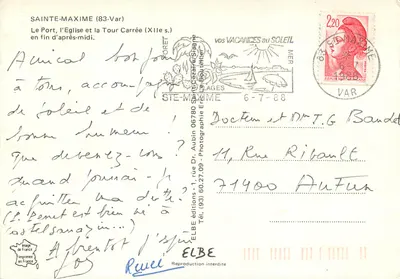 SAINTE-MAXIME (83-Var)
Le Port, l'Eglise et la Tour Carrée (XIIe s.)
en fin d'après-midi.
Amical bonjour
à tous, accompagné
de soleil et de
bonne humeur !
que devenez-vous ?
quand pourrai-je
acquitter ma dette ?
est bien né à
Castelsarrazin...
A bientôt j'espère
René
ELBE éditions - 1, rue Dr. Aubin 06780
Tél. (93) 60.27.09 - Photographie
ELBE
Reproduction interdite
FORET
VOS VACANCES AU SOLEIL
MER
PLAGES
STE-MAXIME
6-7-88
VAR
2,20
Docteur et Mme T.G Baudot
11, Rue Ribault
71400 Autun